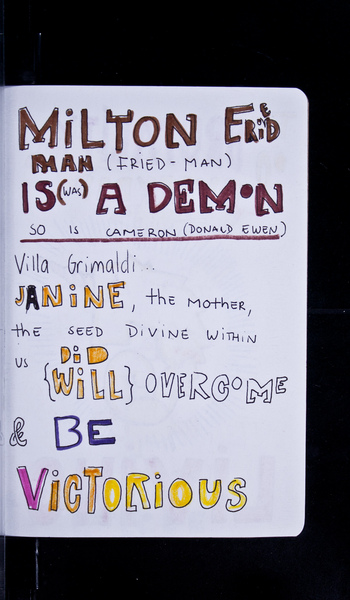 MiLTON ERiED
MAN (FRIED-MAN)
IS (WAS) A DEMON
SO IS CAMERON (DONALD EWEN)
Villa Grimaldi...
JANiNE, the MOTHER,
the SEED DIVINE WITHIN
us DiD
{WiLL} OVERCOME
& BE
VICTORiOUS